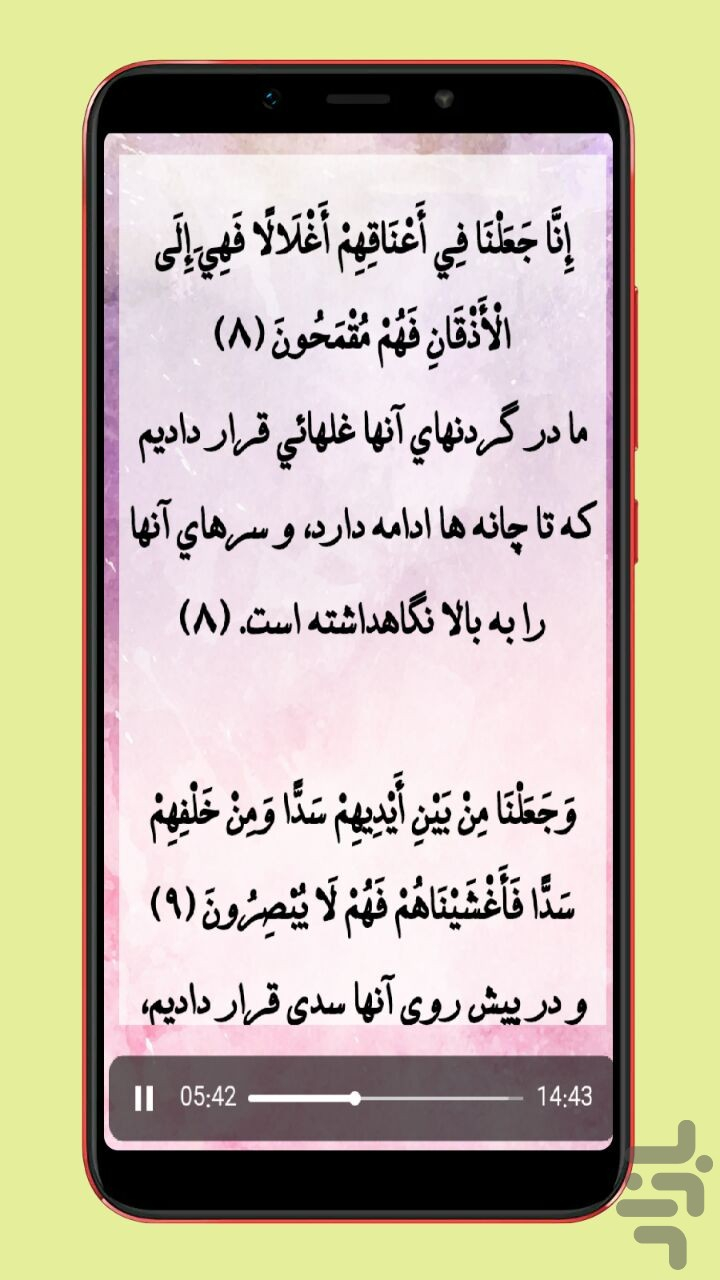 إِنَّا جَعَلْنَا فِي أَعْنَاقِهِمْ أَغْلَالًا فَهِيَ إِلَى
الْأَذْقَانِ فَهُمْ مُقْمَحُونَ (۸)
ما در گردنهاي آنها غلهائي قرار داديم
که تا چانه ها ادامه دارد، و سرهاي آنها
را به بالا نگاهداشته است. (۸)
وَجَعَلْنَا مِنْ بَيْنِ أَيْدِيهِمْ سَدًّا وَمِنْ خَلْفِهِمْ
سَدًّا فَأَغْشَيْنَاهُمْ فَهُمْ لَا يُبْصِرُونَ (۹)
و در پیش روی آنها سدی قرار دادیم،
05:42 14:43
بازار